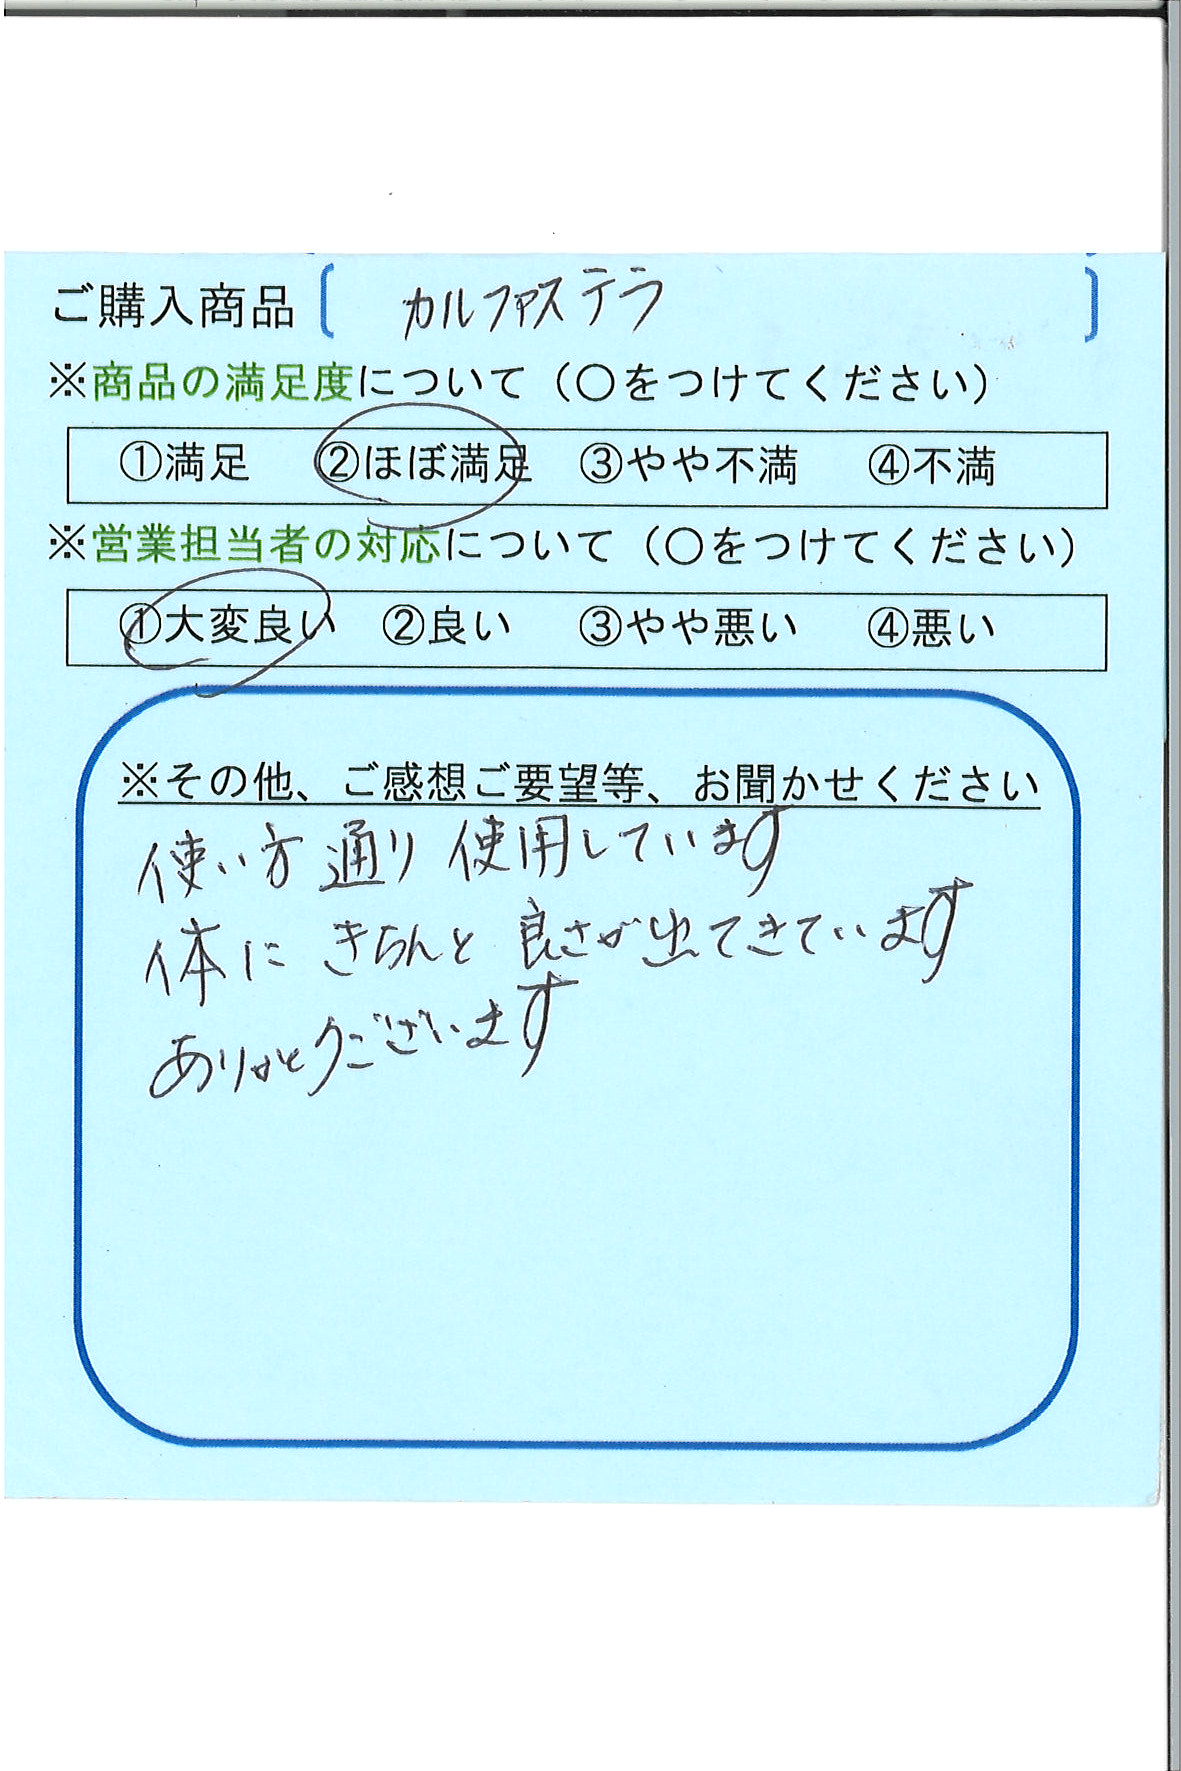 ご購入商品〔 カルファステラ 〕
※商品の満足度について（○をつけてください）
①満足 ②ほぼ満足 ③やや不満 ④不満
※営業担当者の対応について（○をつけてください）
①大変良い ②良い ③やや悪い ④悪い
※その他、ご感想ご要望等、お聞かせください
使い方通り 使用しています
体に きちんと 良さが出てきています
ありがとうございます